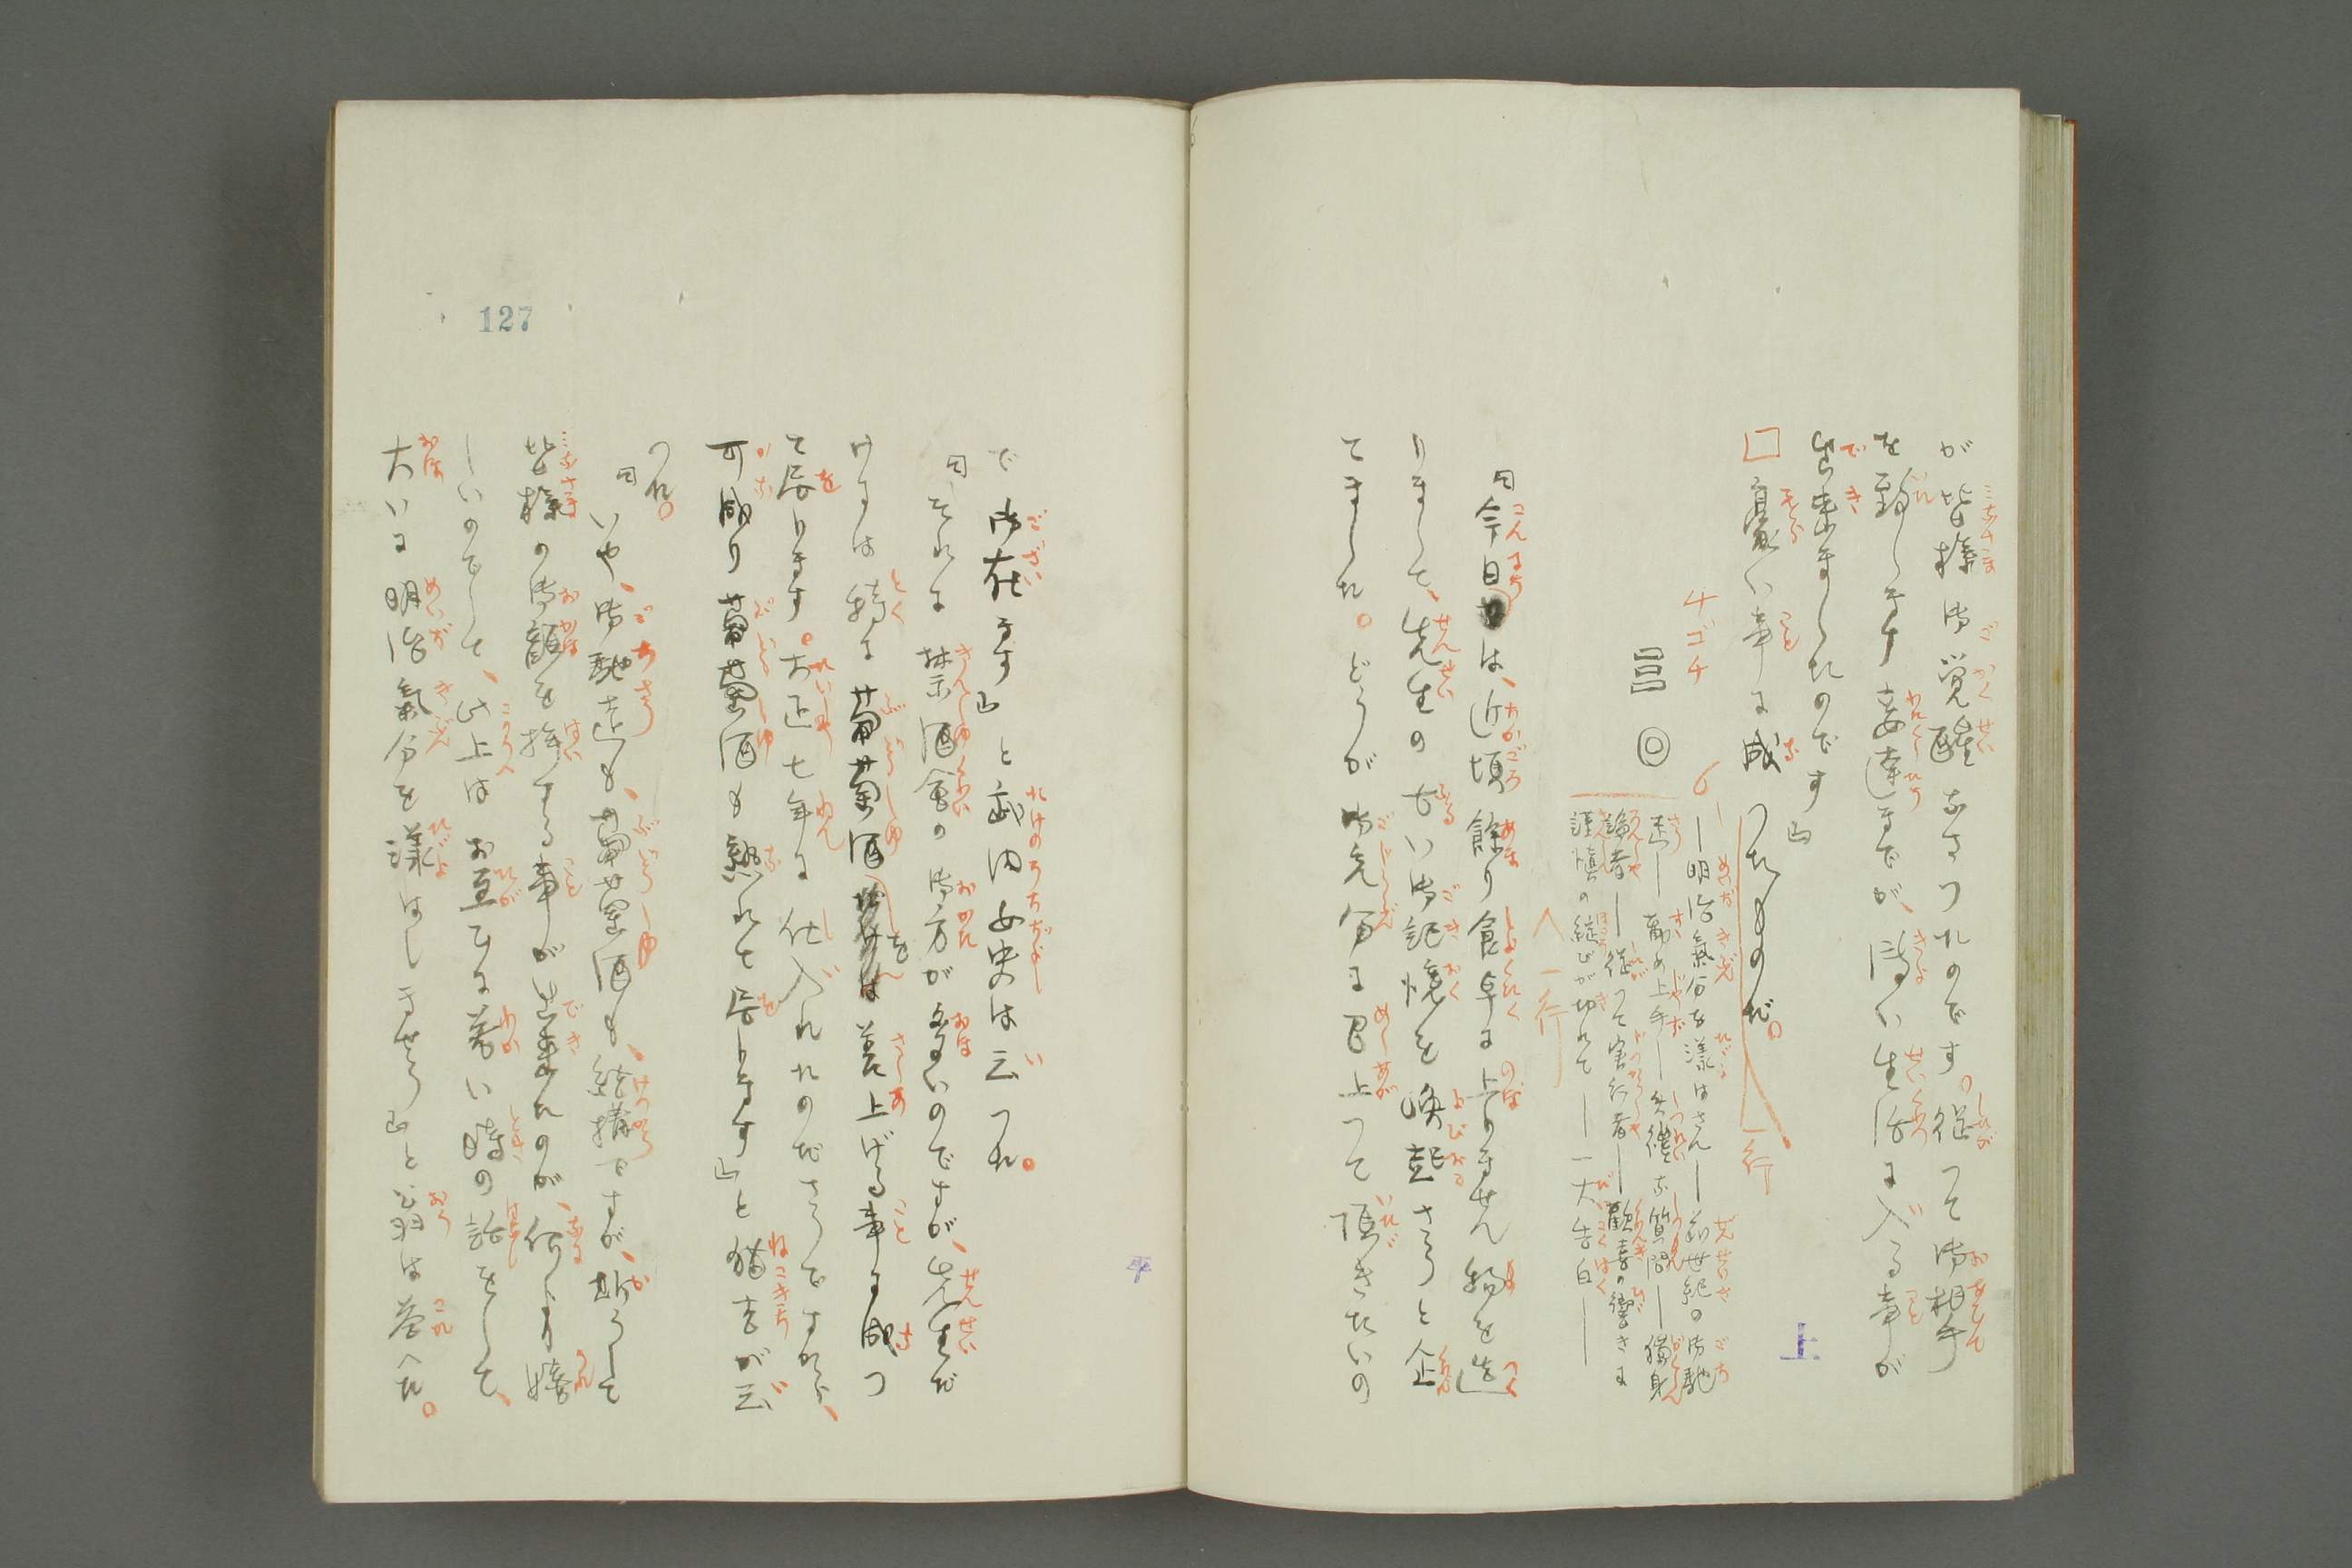 が皆様御覚醒なさつたのです。従つて御相手
を致します妾達までが、潔い生活に入る事が
出来ましたのです』
豪い事に成つたものだ。
一行
四ゴチ
6
呂 ◎
―明治気分を漾はさん―前世紀の御馳
走―薦め上手―失礼な質問―独身
論者―従つて実行者―歓喜の響きに
謹慎の綻びが切れて―一大告白―
一行
『今日は、近頃余り食卓に上りません物を造
りまして、先生の古い御記憶を喚起さうと企
てました。どうが御充分に召上つて頂きたいの
上
で御在ます』と武内女史は云つた。
『それに禁酒会の御方が多いのですが、先生だ
けには特に葡萄酒を差上げる事に成つ
て居ります。大正七年に仕入れたのださうですから、
可成り葡萄酒も熟れて居ります』と猫吉が云
つた。
『いや、御馳走も、葡萄酒も、結構ですが、斯うして
皆様の御顔を拝する事が出来たのが、何より嬉
しいのでして、此上はお互ひに若い時の話をして、
大いに明治気分を漾はしませう』と翁は答へた。
平
127